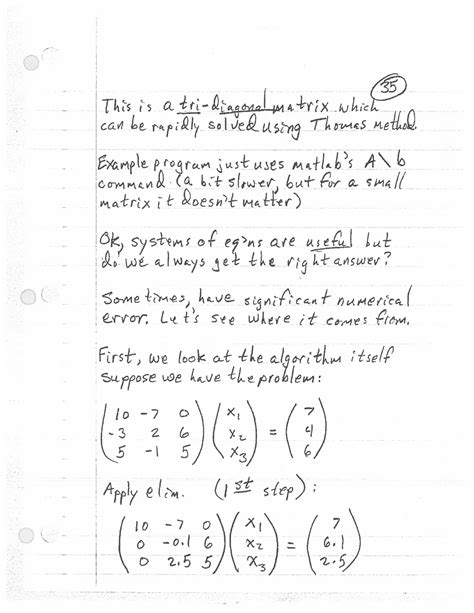 35
This is a tri-diagonal matrix which
can be rapidly solved using Thomas Method.
Example program just uses matlab's A\b
command (a bit slower, but for a small
matrix it doesn't matter)
Ok, systems of eq'ns are useful but
do we always get the right answer?
Sometimes, have significant numerical
error. Let's see where it comes from.
First, we look at the algorithm itself
suppose we have the problem:
10 -7 0 x1 7
-3 2 6 x2 = 4
5 -1 5 x3 6
Apply elim. (1st step):
10 -7 0 x1 7
0 -0.1 6 x2 = 6.1
0 2.5 5 x3 2.5